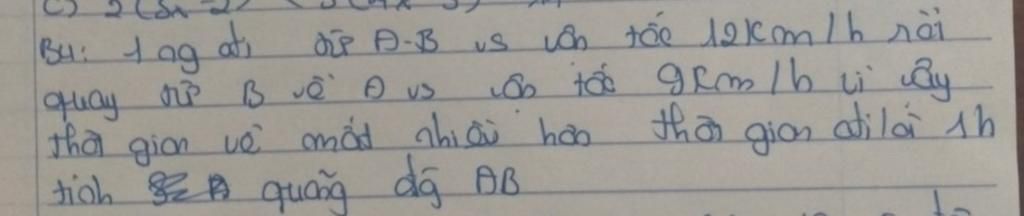 c) 2(3x-2)
B4: 1 ng đi từ A-B vs vận tốc 12km/h rồi
quay từ B về A vs vận tốc 9km/h vì vậy
thời gian về mất nhiều hơn thời gian đi là 1h
tích quãng đg AB